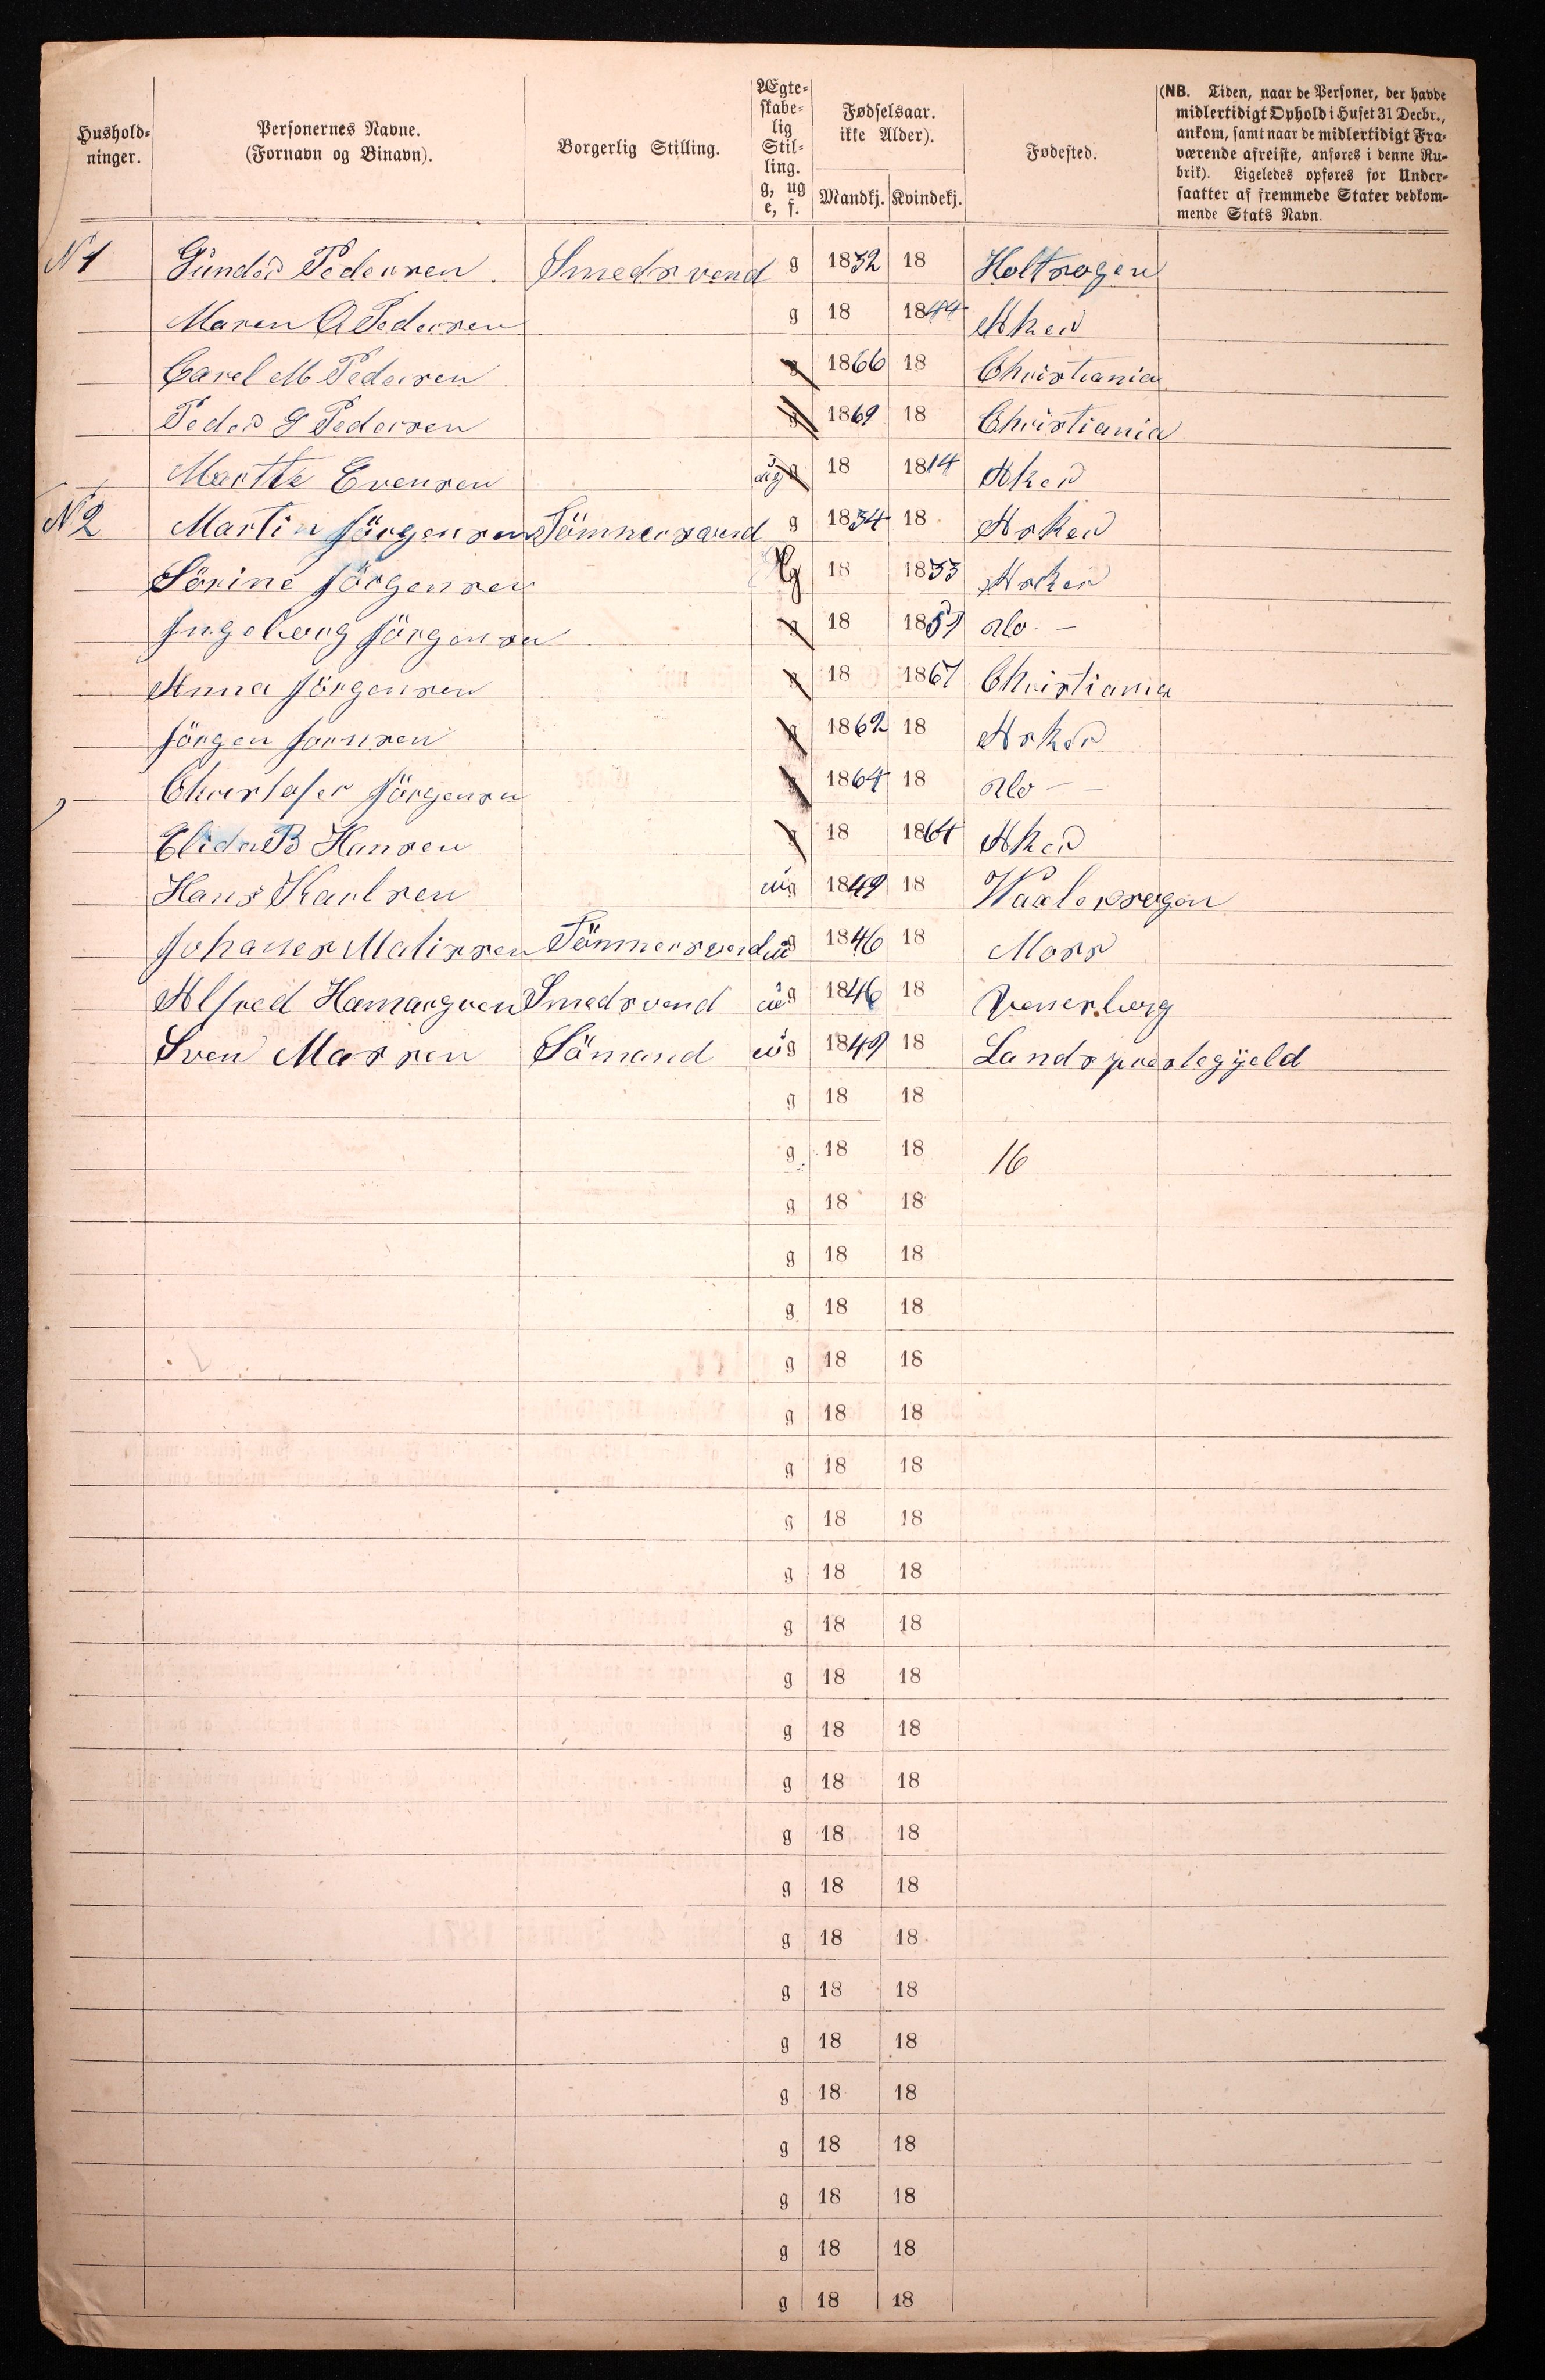 Hushold-
ninger.
Personernes Navne.
(Fornavn og Binavn).
Borgerlig Stilling.
Ægte-
skabe-
lig
Stil-
ling.
g, ug
e, f.
Fødselsaar.
ikke Alder).
Mandkj. Kvindekj.
Fødested.
(NB. Tiden, naar de Personer, der havde
midlertidigt Ophold i Huset 31 Decbr.,
ankom, samt naar de midlertidigt Fra-
værende afreiste, anføres i denne Ru-
brik). Ligeledes opføres for Under-
saatter af fremmede Stater vedkom-
mende Stats Navn.
N 1 Gunder Pedersen Smedsvend g 1832 18 Holtsogen
Maren A Pedersen g 18 1844 Aker
Carel M Pedersen g 1866 18 Christiania
Peder G Pedersen g 1869 18 Christiania
Marthe Evensen ug 18 1814 Aker
N 2 Martin Jörgensen Tömmersvend g 1834 18 Asker
Sörine Jörgensen g 18 1833 Asker
Ingeborg Jörgensen g 18 1859 do -
Anna Jörgensen g 18 1867 Christiania
Jörgen g 1862 18 Asker
Christofer Jörgensen g 1864 18 do - -
Elida B Hansen g 18 1864 Aker
Hans Karlsen ug 1849 18 Waalersogen
Johanes Matissen Tömmersvend ug 1846 18 Moss
Alfred Hamargren Smedsvend ug 1846 18 Venersborg
Sven Massen Sömand ug 1849 18 Landspræstegjeld
g 18 18
g 18 18 16
g 18 18
g 18 18
g 18 18
g 18 18
g 18 18
g 18 18
g 18 18
g 18 18
g 18 18
g 18 18
g 18 18
g 18 18
g 18 18
g 18 18
g 18 18
g 18 18
g 18 18
g 18 18
g 18 18
g 18 18
g 18 18
g 18 18